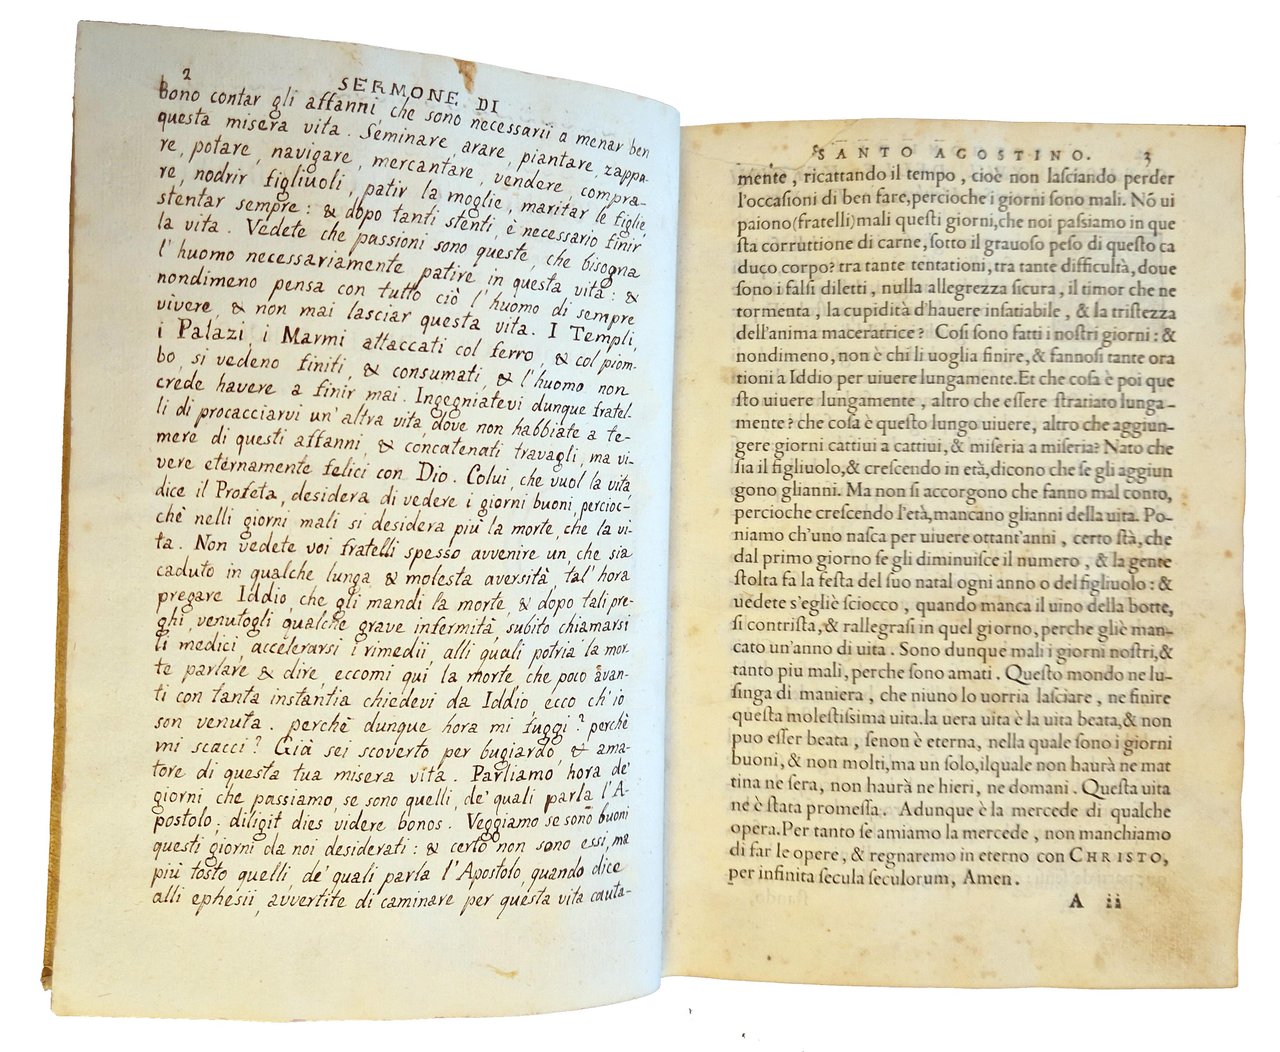 2
SERMONE DI
bono contar gli affanni, che sono necessarii a menar ben
questa misera vita. Seminare, arare, piantare, zappa-
re, potare, navigare, mercantare, vendere, compra-
re, nodrir figliuoli, patir la moglie, maritar le figlie,
stentar sempre: & dopo tanti stenti, è necessario finir
la vita. Vedete che passioni sono queste, che bisogna
l'huomo necessariamente patire in questa vita: &
nondimeno pensa con tutto ciò l'huomo di sempre
vivere, & non mai lasciar questa vita. I Templi,
i Palazi, i Marmi attaccati col ferro, & col piom-
bo, si vedeno finiti, & consumati, & l'huomo non
crede havere a finir mai. Ingegniatevi dunque fratel-
li di procacciarvi un'altra vita, dove non habbiate a te-
mere di questi affanni, & concatenati travagli, ma vi-
vere eternamente felici con Dio. Colui, che vuol la vita,
dice il Profeta, desidera di vedere i giorni buoni, percioc-
chè nelli giorni mali si desidera più la morte, che la vi-
ta. Non vedete voi fratelli spesso avvenire un, che sia
caduto in qualche lunga, & molesta aversità, tal'hora
pregare Iddio, che gli mandi la morte, & dopo tali pre-
ghi, venutogli qualche grave infermità, subito chiamarsi
li medici, accelerarsi i rimedii, alli quali potria la mor-
te parlare & dire, eccomi qui la morte che poco avan-
ti con tanta instantia chiedevi da Iddio, ecco ch'io
son venuta. perchè dunque hora mi fuggi? perchè
mi scacci? Già sei scoverto per bugiardo, & ama-
tore di questa tua misera vita. Parliamo hora de'
giorni, che passiamo, se sono quelli, de' quali parla l'A-
postolo; diligit dies videre bonos. Veggiamo se sono buoni
questi giorni da noi desiderati: & certo non sono essi, ma
più tosto quelli, de' quali parla l'Apostolo, quando dice
alli ephesii, avvertite di caminare per questa vita cauta-
SANTO AGOSTINO. 3
mente, ricattando il tempo, cioè non lasciando perder
l'occasioni di ben fare, percioche i giorni sono mali. Nō ui
paiono(fratelli)mali questi giorni, che noi passiamo in que
sta corruttione di carne, sotto il grauoso peso di questo ca
duco corpo? tra tante tentationi, tra tante difficultà, doue
sono i falsi diletti, nulla allegrezza sicura, il timor che ne
tormenta, la cupidità d'hauere insatiabile, & la tristezza
dell'anima maceratrice? Cosi sono fatti i nostri giorni: &
nondimeno, non è chi li uoglia finire, & fannosi tante ora
tioni a Iddio per uiuere lungamente. Et che cosa è poi que
sto uiuere lungamente, altro che essere stratiato lunga-
mente? che cosa è questo lungo uiuere, altro che aggiun-
gere giorni cattiui a cattiui, & miseria a miseria? Nato che
sia il figliuolo, & crescendo in età, dicono che se gli aggiun
gono glianni. Ma non si accorgono che fanno mal conto,
percioche crescendo l'età, mancano glianni della uita. Po-
niamo ch'uno nasca per uiuere ottant'anni, certo stà, che
dal primo giorno se gli diminuisce il numero, & la gente
stolta fa la festa del suo natal ogni anno o del figliuolo: &
uedete s'egliè sciocco, quando manca il uino della botte,
si contrista, & rallegrasi in quel giorno, perche gliè man-
cato un'anno di uita. Sono dunque mali i giorni nostri, &
tanto piu mali, perche sono amati. Questo mondo ne lu-
singa di maniera, che niuno lo uorria lasciare, ne finire
questa molestissima uita. la uera uita è la uita beata, & non
puo esser beata, senon è eterna, nella quale sono i giorni
buoni, & non molti, ma un solo, ilquale non haurà ne mat
tina ne sera, non haurà ne hieri, ne domani. Questa uita
ne è stata promessa. Adunque è la mercede di qualche
opera. Per tanto se amiamo la mercede, non manchiamo
di far le opere, & regnaremo in eterno con CHRISTO,
per infinita secula seculorum, Amen.
A ii